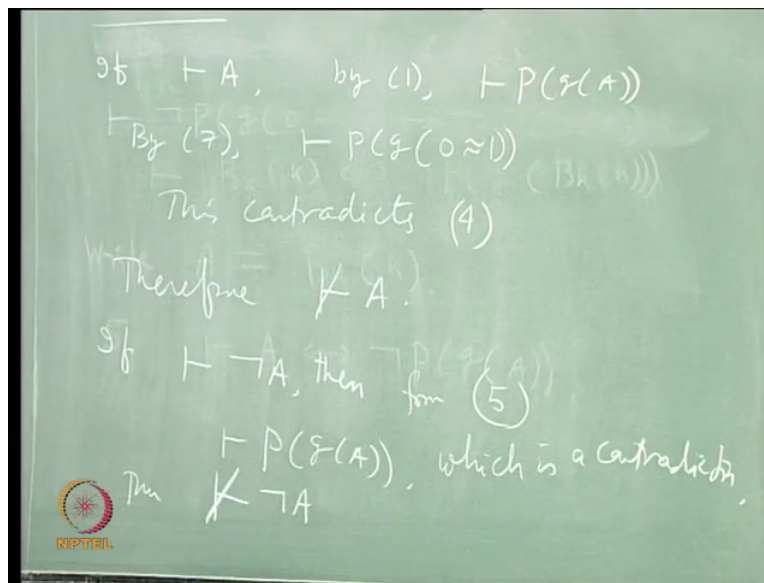 If ⊢ A, by (1), ⊢ P(g(A))
By (7), ⊢ P(g(0≈1))
This contradicts (4)
Therefore ⊬ A.
If ⊢ ¬A, then from (5)
⊢ P(g(A)), which is a contradiction.
Thus ⊬ ¬A
NPTEL